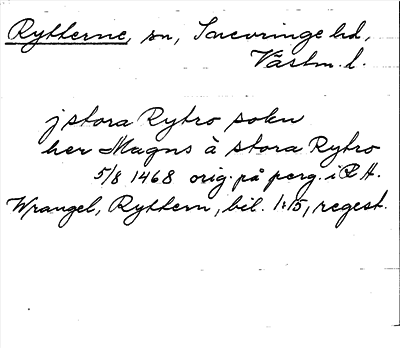 Rytterne, sn, Snevringe hd,
Västm. l.
j stora Rytro sokn
her Magns à stora Rytro
5/8 1468 orig. på perg. i RA.
Wrangel, Ryttern, bil. 1:15, regest.